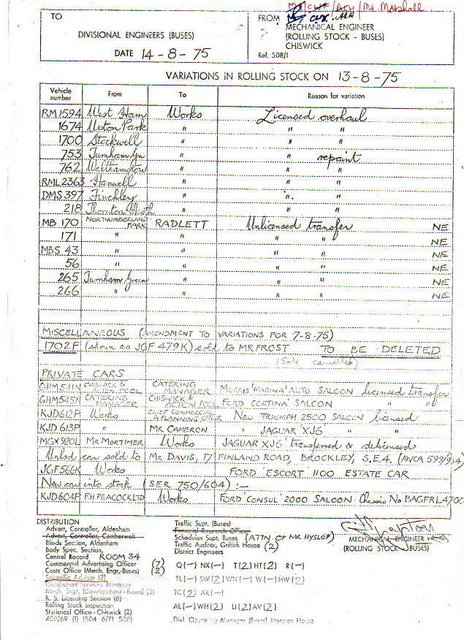 TO
DIVISIONAL ENGINEERS (BUSES)
DATE 14-8-75
Mr. Marshall
FROM
MECHANICAL ENGINEER
(ROLLING STOCK - BUSES)
CHISWICK
Ref. 508/1
VARIATIONS IN ROLLING STOCK ON 13-8-75
Vehicle number From To Reason for variation
RM 1594 West Ham Works Licensed overhaul
1674 Upton Park " " "
1700 Stockwell " " "
753 Turnham Grn " " repaint
762 Walthamstow " " "
RML 2363 Hanwell " " "
DMS 397 Finchley " " "
218 Thornton Heath " " "
MB 170 NORTHUMBERLAND PARK RADLETT Unlicensed transfer NE
171 " " " " NE
MBS 43 " " " " NE
56 " " " " NE
265 Turnham Green " " " NE
266 " " " " NE
MISCELLANEOUS (AMENDMENT TO VARIATIONS FOR 7-8-75)
1702F (shown as JGF 479K) sold to MR FROST TO BE DELETED
(Sale cancelled)
PRIVATE CARS
GHM 511N CATERING MANAGER MORRIS 'MARINA' AUTO SALOON licensed transfer
GHM 515N CATERING MANAGER CHISWICK & FORD CORTINA SALOON " "
KJD 612P Works New TRIUMPH 2500 SALOON licensed
KJD 613P " MR CAMERON " JAGUAR XJ6 "
MGX 920L MR MORTIMER Works JAGUAR XJ6 transferred & delicensed
Unlcd car sold to MR DAVIS, 17 FINLAND ROAD, BROCKLEY, S.E.4. (AVCA 599/914)
JGF 566K Works FORD 'ESCORT' 1100 ESTATE CAR
New car into stock (SER 750/604) :-
KJD 604P F.H PEACOCK LTD Works FORD CONSUL 2000 SALOON Chassis No BAGFRL4700
DISTRIBUTION
Advert, Controller, Aldenham
Advert, Controller, Camberwell
Blinds Section, Aldenham
Body Spec. Section,
Central Record ROOM 34
Commercial Advertising Officer (2)
Costs Office (Mech. Engr. Buses) (2)
R. S. Licensing Section (8)
Rolling Stock Inspection
Statistical Office - Chiswick (2)
Traffic Supt. (Buses)
Schedules Supt. (Buses) (ATTN. OF MR HYSLOP)
Traffic Auditor, Griffith House (2)
District Engineers
Q(-) NX(-) T(2) HT(2) R(-)
TL(-) SW(2) WN(-) W(-) HW(2)
TC(2) AR(-)
AL(-) WH(2) U(2) AV(2)
MECHANICAL ENGINEER
(ROLLING STOCK - BUSES)